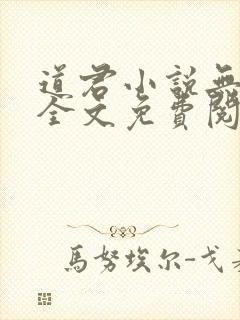 道君小說無
全文免費閱
馬努埃尔-戈